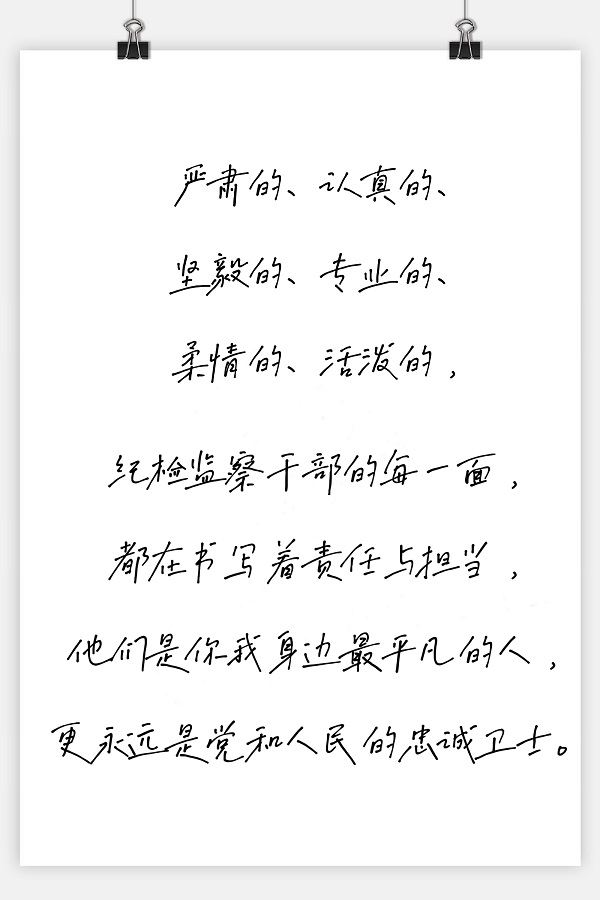 严肃的、认真的、
坚毅的、专业的、
柔情的、活泼的，
纪检监察干部的每一面，
都在书写着责任与担当，
他们是你我身边最平凡的人，
更永远是党和人民的忠诚卫士。